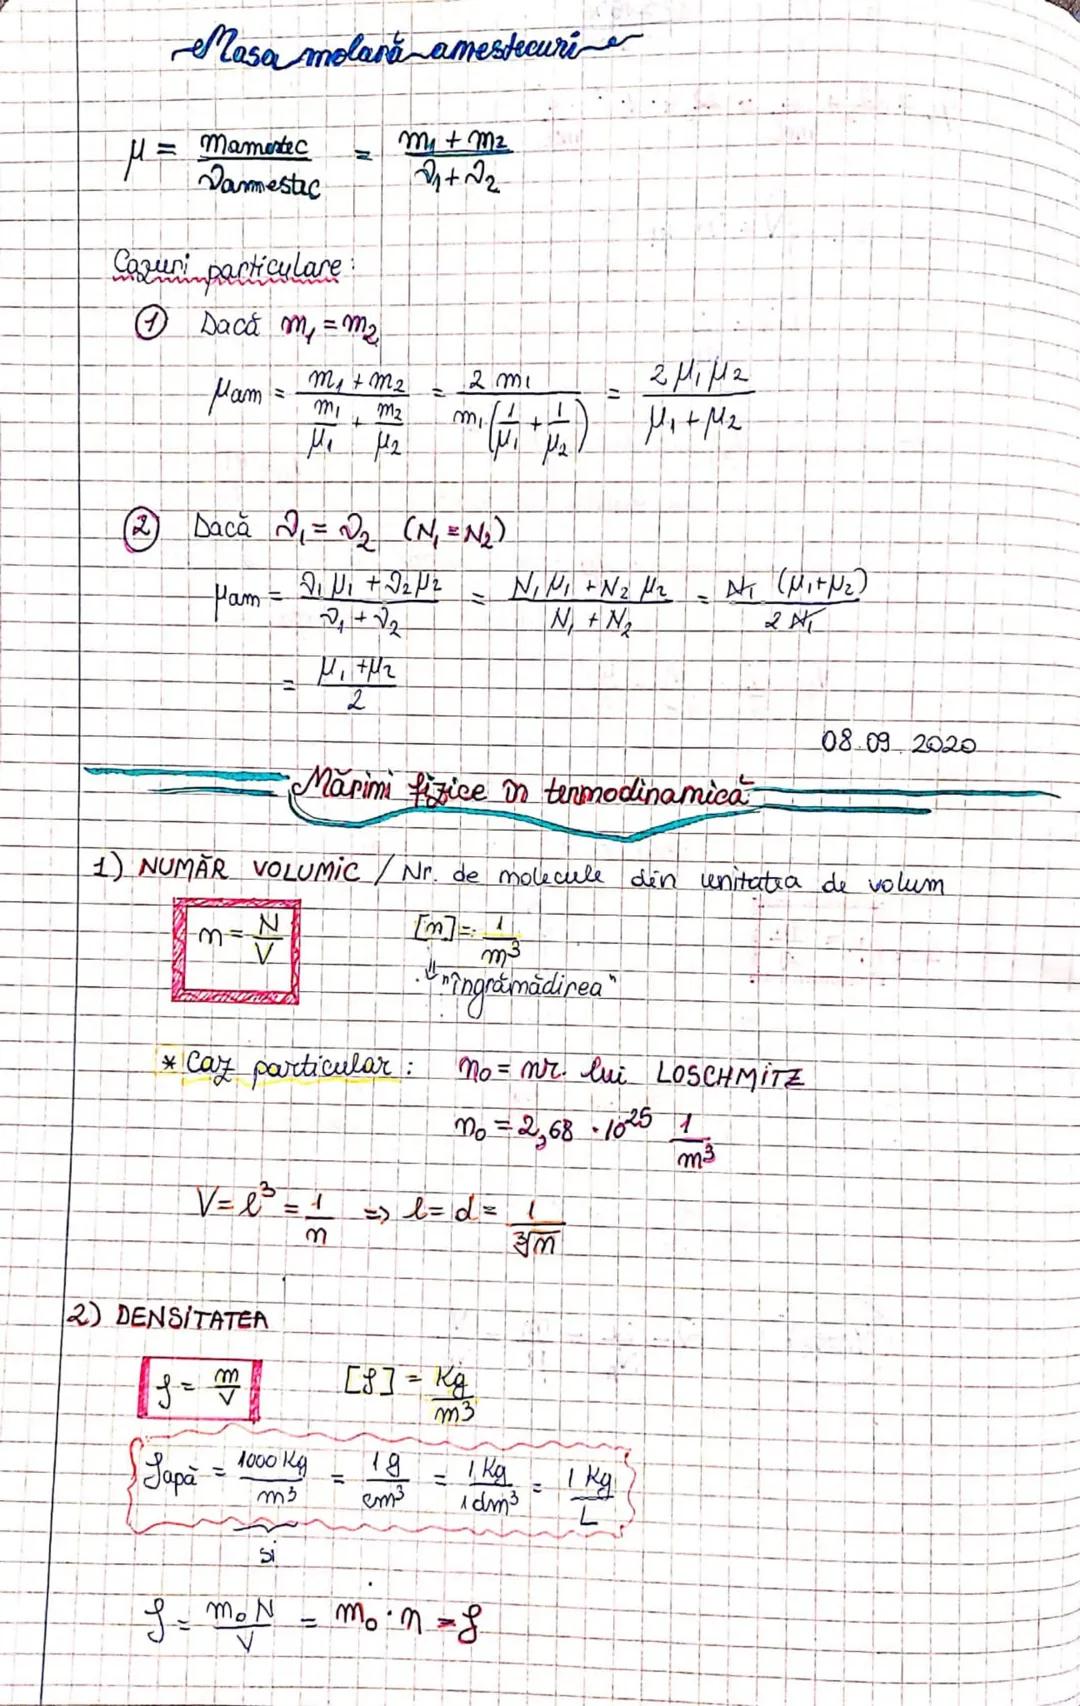 Masa molară amestecuri
μ = mamestec/νamestec = (m₁ + m₂)/(ν₁ + ν₂)
Cazuri particulare:
① Dacă m₁ = m₂
μam = (m₁ + m₂)/(m₁/μ₁ + m₂/μ₂) = 2 m₁/(m₁(1/μ₁ + 1/μ₂)) = 2 μ₁μ₂/(μ₁ + μ₂)
② Dacă ν₁ = ν₂ (N₁ = N₂)
μam = (ν₁μ₁ + ν₂μ₂)/(ν₁ + ν₂) = (N₁μ₁ + N₂μ₂)/(N₁ + N₂) = N₁(μ₁+μ₂)/(2 N₁)
= (μ₁+μ₂)/2
08.09.2020
Mărimi fizice în termodinamică
1) NUMĂR VOLUMIC / Nr. de molecule din unitatea de volum
n = N/V [n] = 1/m³
⇓ "îngrămădirea"
* Caz particular: n₀ = nr. lui LOSCHMITZ
n₀ = 2,68 · 10²⁵ 1/m³
V = l³ = 1/n ⇒ l = d = 1/∛n
2) DENSITATEA
ρ = m/V [ρ] = Kg/m³
ρapă = 1000 Kg/m³ = 1 g/cm³ = 1 Kg/1 dm³ = 1 Kg/L
Si
ρ = m₀N/V = m₀ · n = ρ